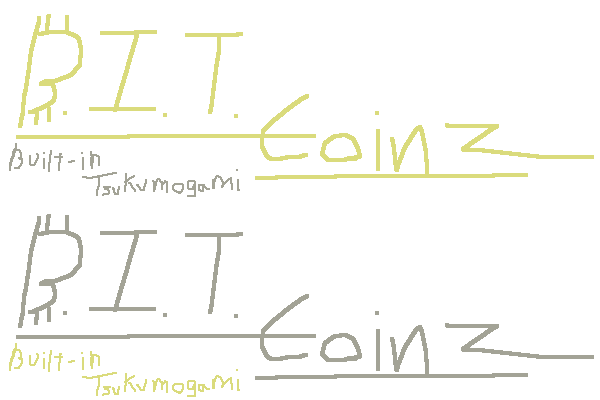 B.I.T.
Coinz
Built-in
Tsukumogami
B.I.T.
Coinz
Built-in
Tsukumogami